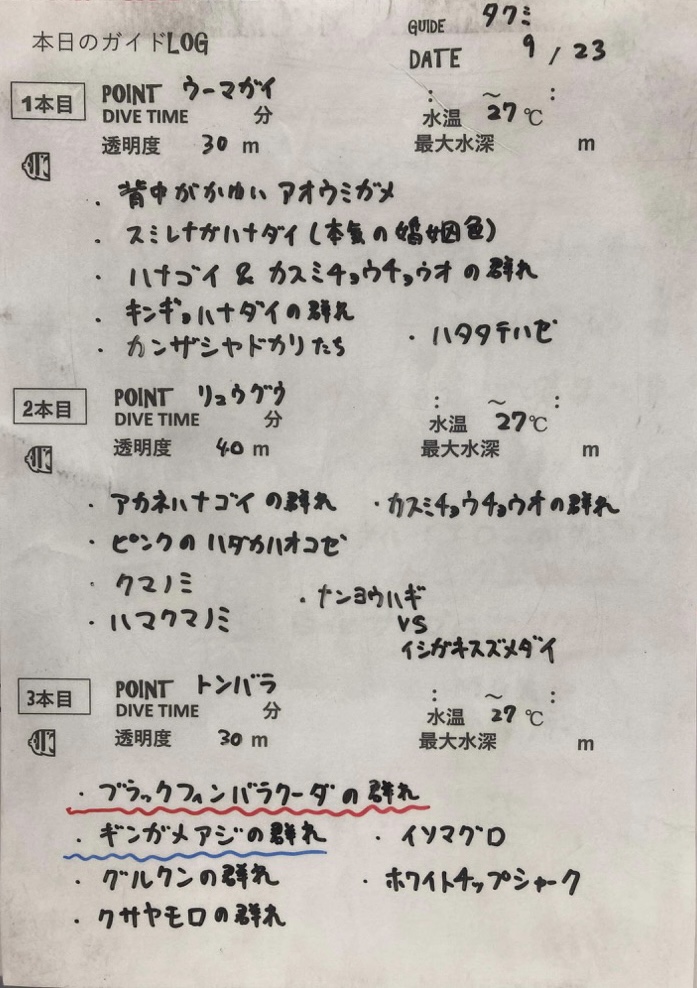 本日のガイドLOG
GUIDE タクミ
DATE 9 / 23
1本目 POINT ウーマガイ : ～ :
DIVE TIME 分 水温 27℃
透明度 30 m 最大水深 m
・背中がかゆい アオウミガメ
・スミレナガハナダイ (本気の婚姻色)
・ハナゴイ & カスミチョウチョウオ の群れ
・キンギョハナダイの群れ
・カンザシヤドカリたち ・ハタタテハゼ
2本目 POINT リュウグウ : ～ :
DIVE TIME 分 水温 27℃
透明度 40 m 最大水深 m
・アカネハナゴイ の群れ ・カスミチョウチョウオの群れ
・ピンクの ハダカハオコゼ
・クマノミ ・ナンヨウハギ
・ハマクマノミ VS
イシガキスズメダイ
3本目 POINT トンバラ : ～ :
DIVE TIME 分 水温 27℃
透明度 30 m 最大水深 m
・ブラックフィンバラクーダの群れ
・ギンガメアジの群れ ・イソマグロ
・グルクンの群れ ・ホワイトチップシャーク
・クサヤモロの群れ